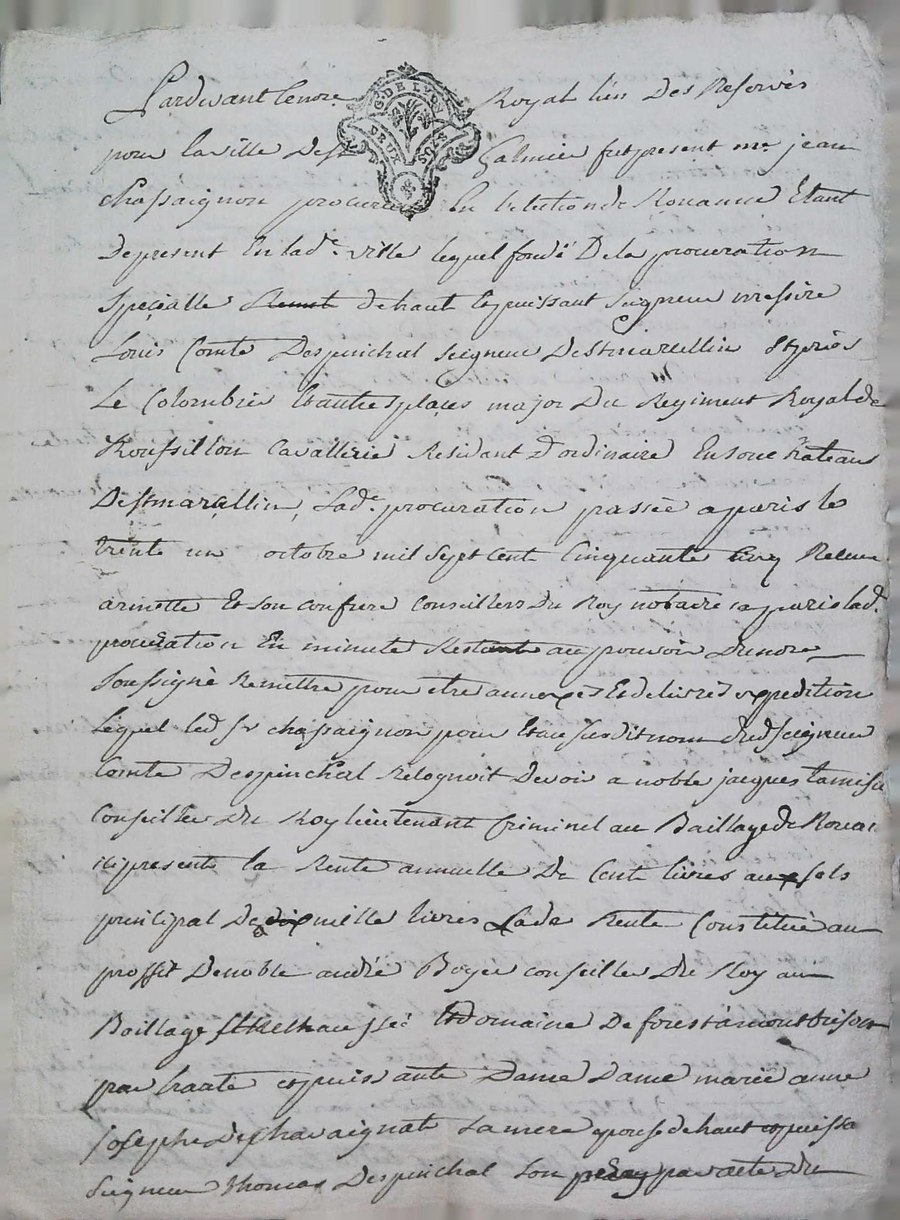 Pardevant lenore Royal lun Des Reservés
G. DE LYON
DEUX SOLS
pour la ville De st Galmier fut present me jean
chassaignon procureur En l'election de Rouanne Etant
De present En lade ville lequel fondé De la procuration
speçialle De haut et puissant Seigneur messire
Louis Comte Despinchal seigneur De st marcellin st priés
Le Colombié Et autres places major Du Regiment Royal de
Roussillon Cavallerie Residant d'ordinaire En son chateau
De st marcellin, lade procuration passée a paris le
trente un octobre mil sept cent Cinquante cinq Receue
armette Et son confrere conseillers Du Roy notaire a paris lade
procuration En minutte au pouvoir Du nore
soussigné Remettre pour etre annexés Et delivrés Expedition
lequel led sr chassaignon pour Et au susdit nom dud seigneur
comte Despinchal Recognoit Devoir a noble jacques
Conseiller Du Roy lieutenant Criminel au Baillage de
present la Rente annuelle De Cent livres au
principal De mille livres lade Rente Constituée au
proffit De noble andré Boyer conseiller Du Roy au
Baillage Et Domaine De forest a montbrison
par haute et puissante Dame Dame marie anne
Josephe De chavaignat sa mere epouse de haut et puissa
seigneur thomas Despinchal son par acte Du